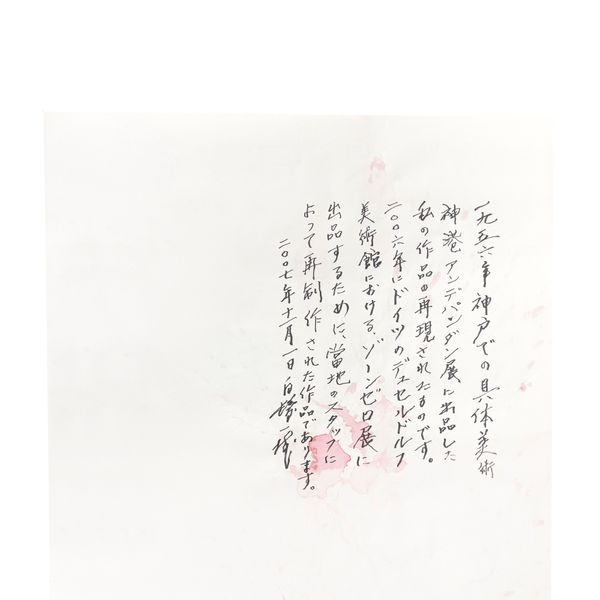 一九五六年神戸での具体美術
神港アンデパンダン展に出品した
私の作品の再現されたものです。
二〇〇六年にドイツのデュセルドルフ
美術館における、ゾーンゼロ展に
出品するために、當地のスタッフに
よって再制作された作品であります。
二〇〇七年十一月一日 白髪一雄